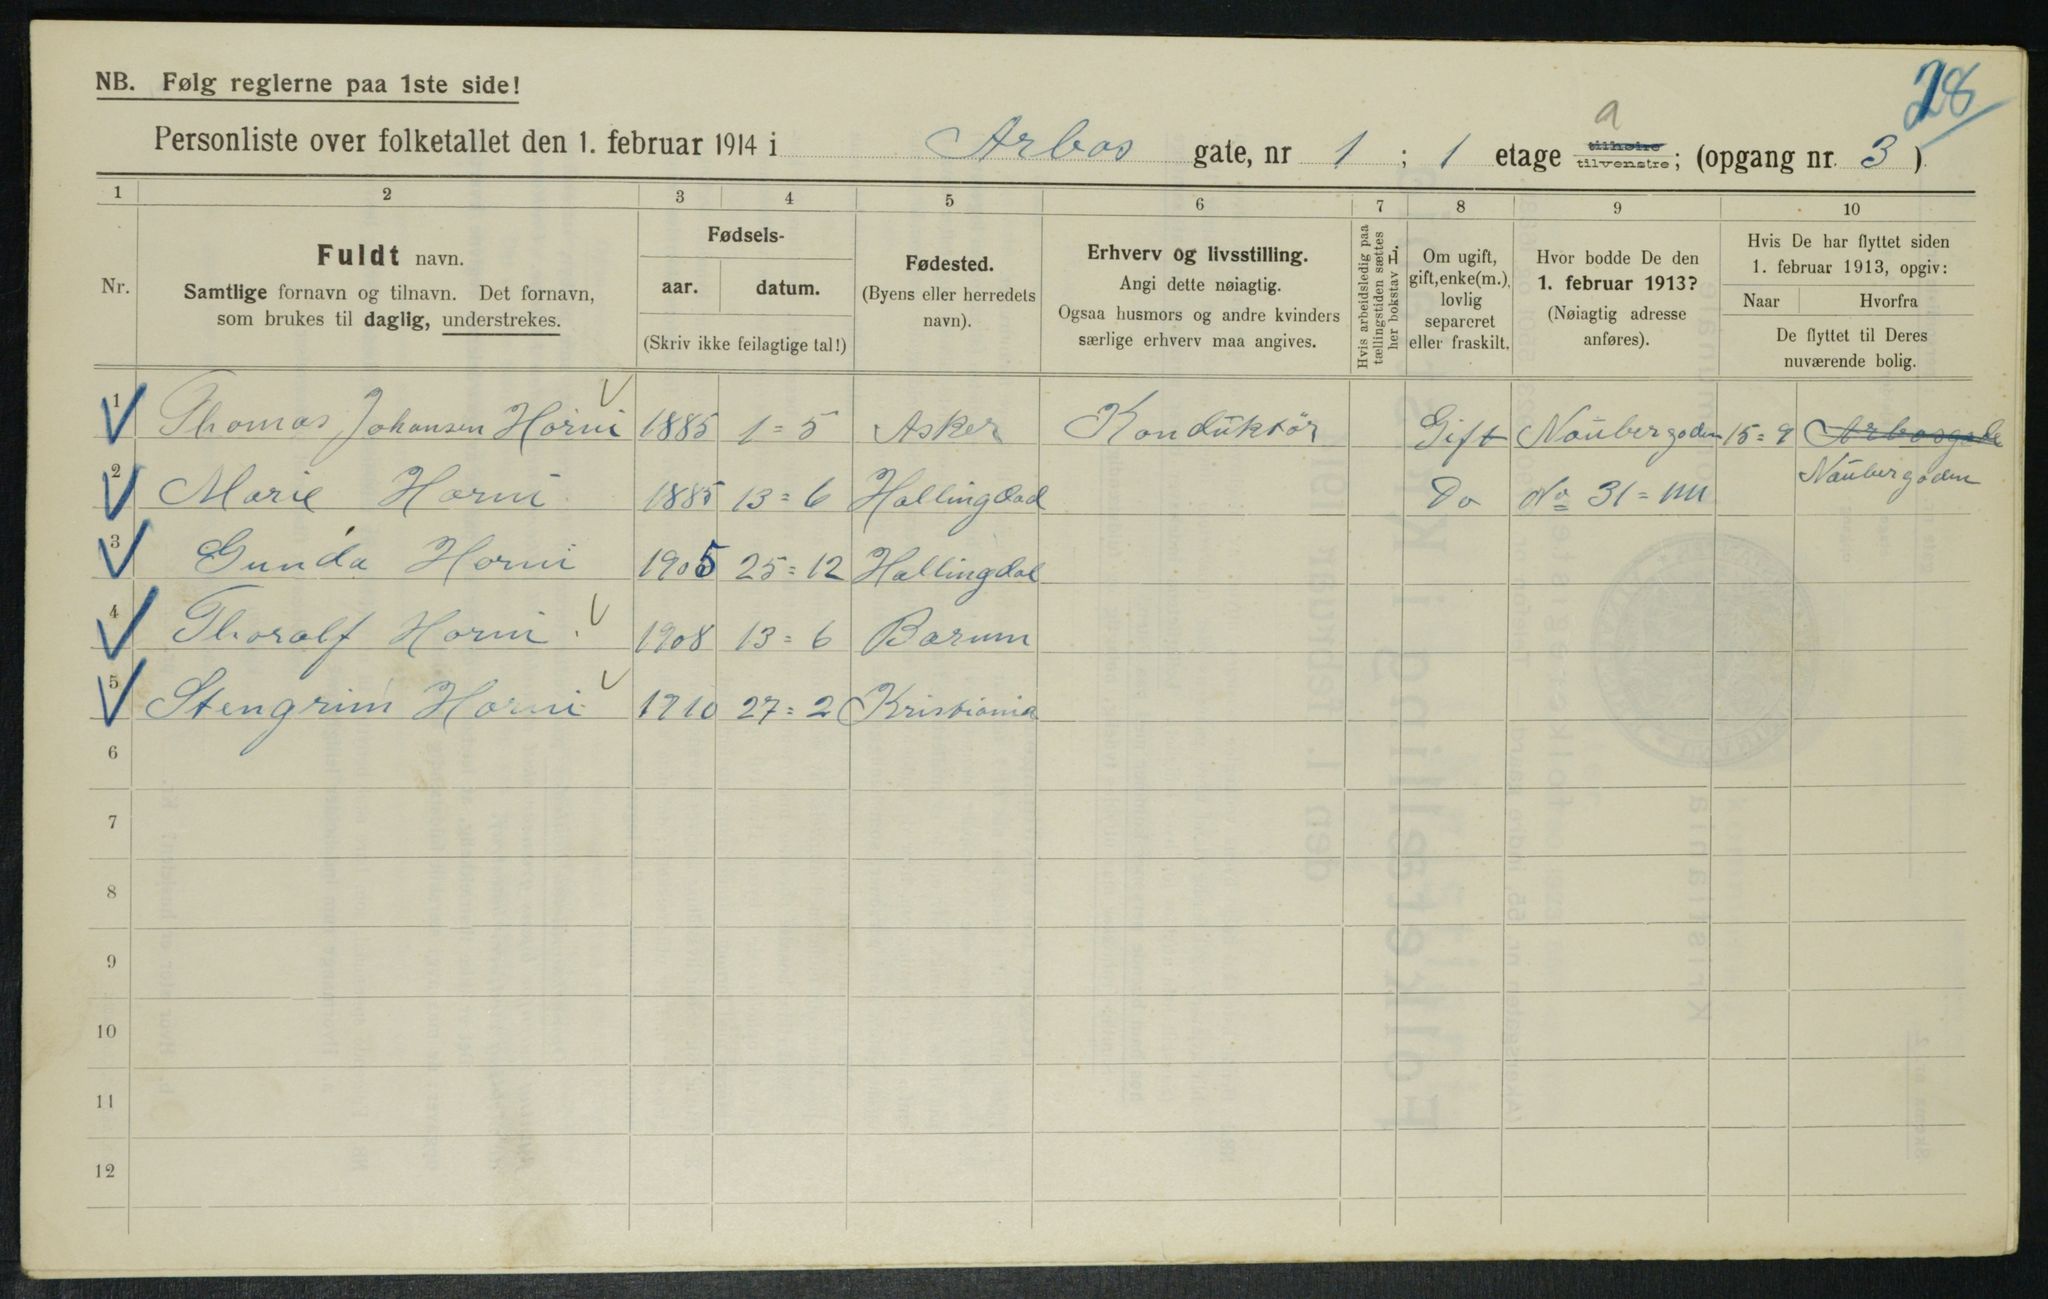 28
NB. Følg reglerne paa 1ste side!
a
Personliste over folketallet den 1. februar 1914 i Arbos gate, nr 1 ; 1 etage tilhøire tilvenstre; (opgang nr. 3 )
1 2 3 4 5 6 7 8 9 10
Nr.
Fuldt navn.
Samtlige fornavn og tilnavn. Det fornavn,
som brukes til daglig, understrekes.
Fødsels-
aar. datum.
(Skriv ikke feilagtige tal!)
Fødested.
(Byens eller herredets
navn).
Erhverv og livsstilling.
Angi dette nøiagtig.
Ogsaa husmors og andre kvinders
særlige erhverv maa angives.
Hvis arbeidsledig paa
tællingstiden sættes
her bokstav L.
Om ugift,
gift, enke(m.),
lovlig
separeret
eller fraskilt.
Hvor bodde De den
1. februar 1913?
(Nøiagtig adresse
anføres).
Hvis De har flyttet siden
1. februar 1913, opgiv:
Naar Hvorfra
De flyttet til Deres
nuværende bolig.
1 Thomas Johansen Horni 1885 1=5 Asker Konduktör Gift Naubergaden 15=9 Arbosgade
Naubergaden
2 Marie Horni 1885 13=6 Hallingdad Do No 31=IIII
3 Gunda Horni 1905 25=12 Hallingdal
4 Thoralf Horni 1908 13=6 Barum
5 Stengrim Horni 1910 27=2 Kristiania
6
7
8
9
10
11
12